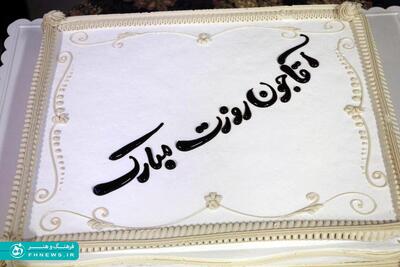 آقاجون روزت مبارک
فرهنگ و هنر
FHNEWS.IR